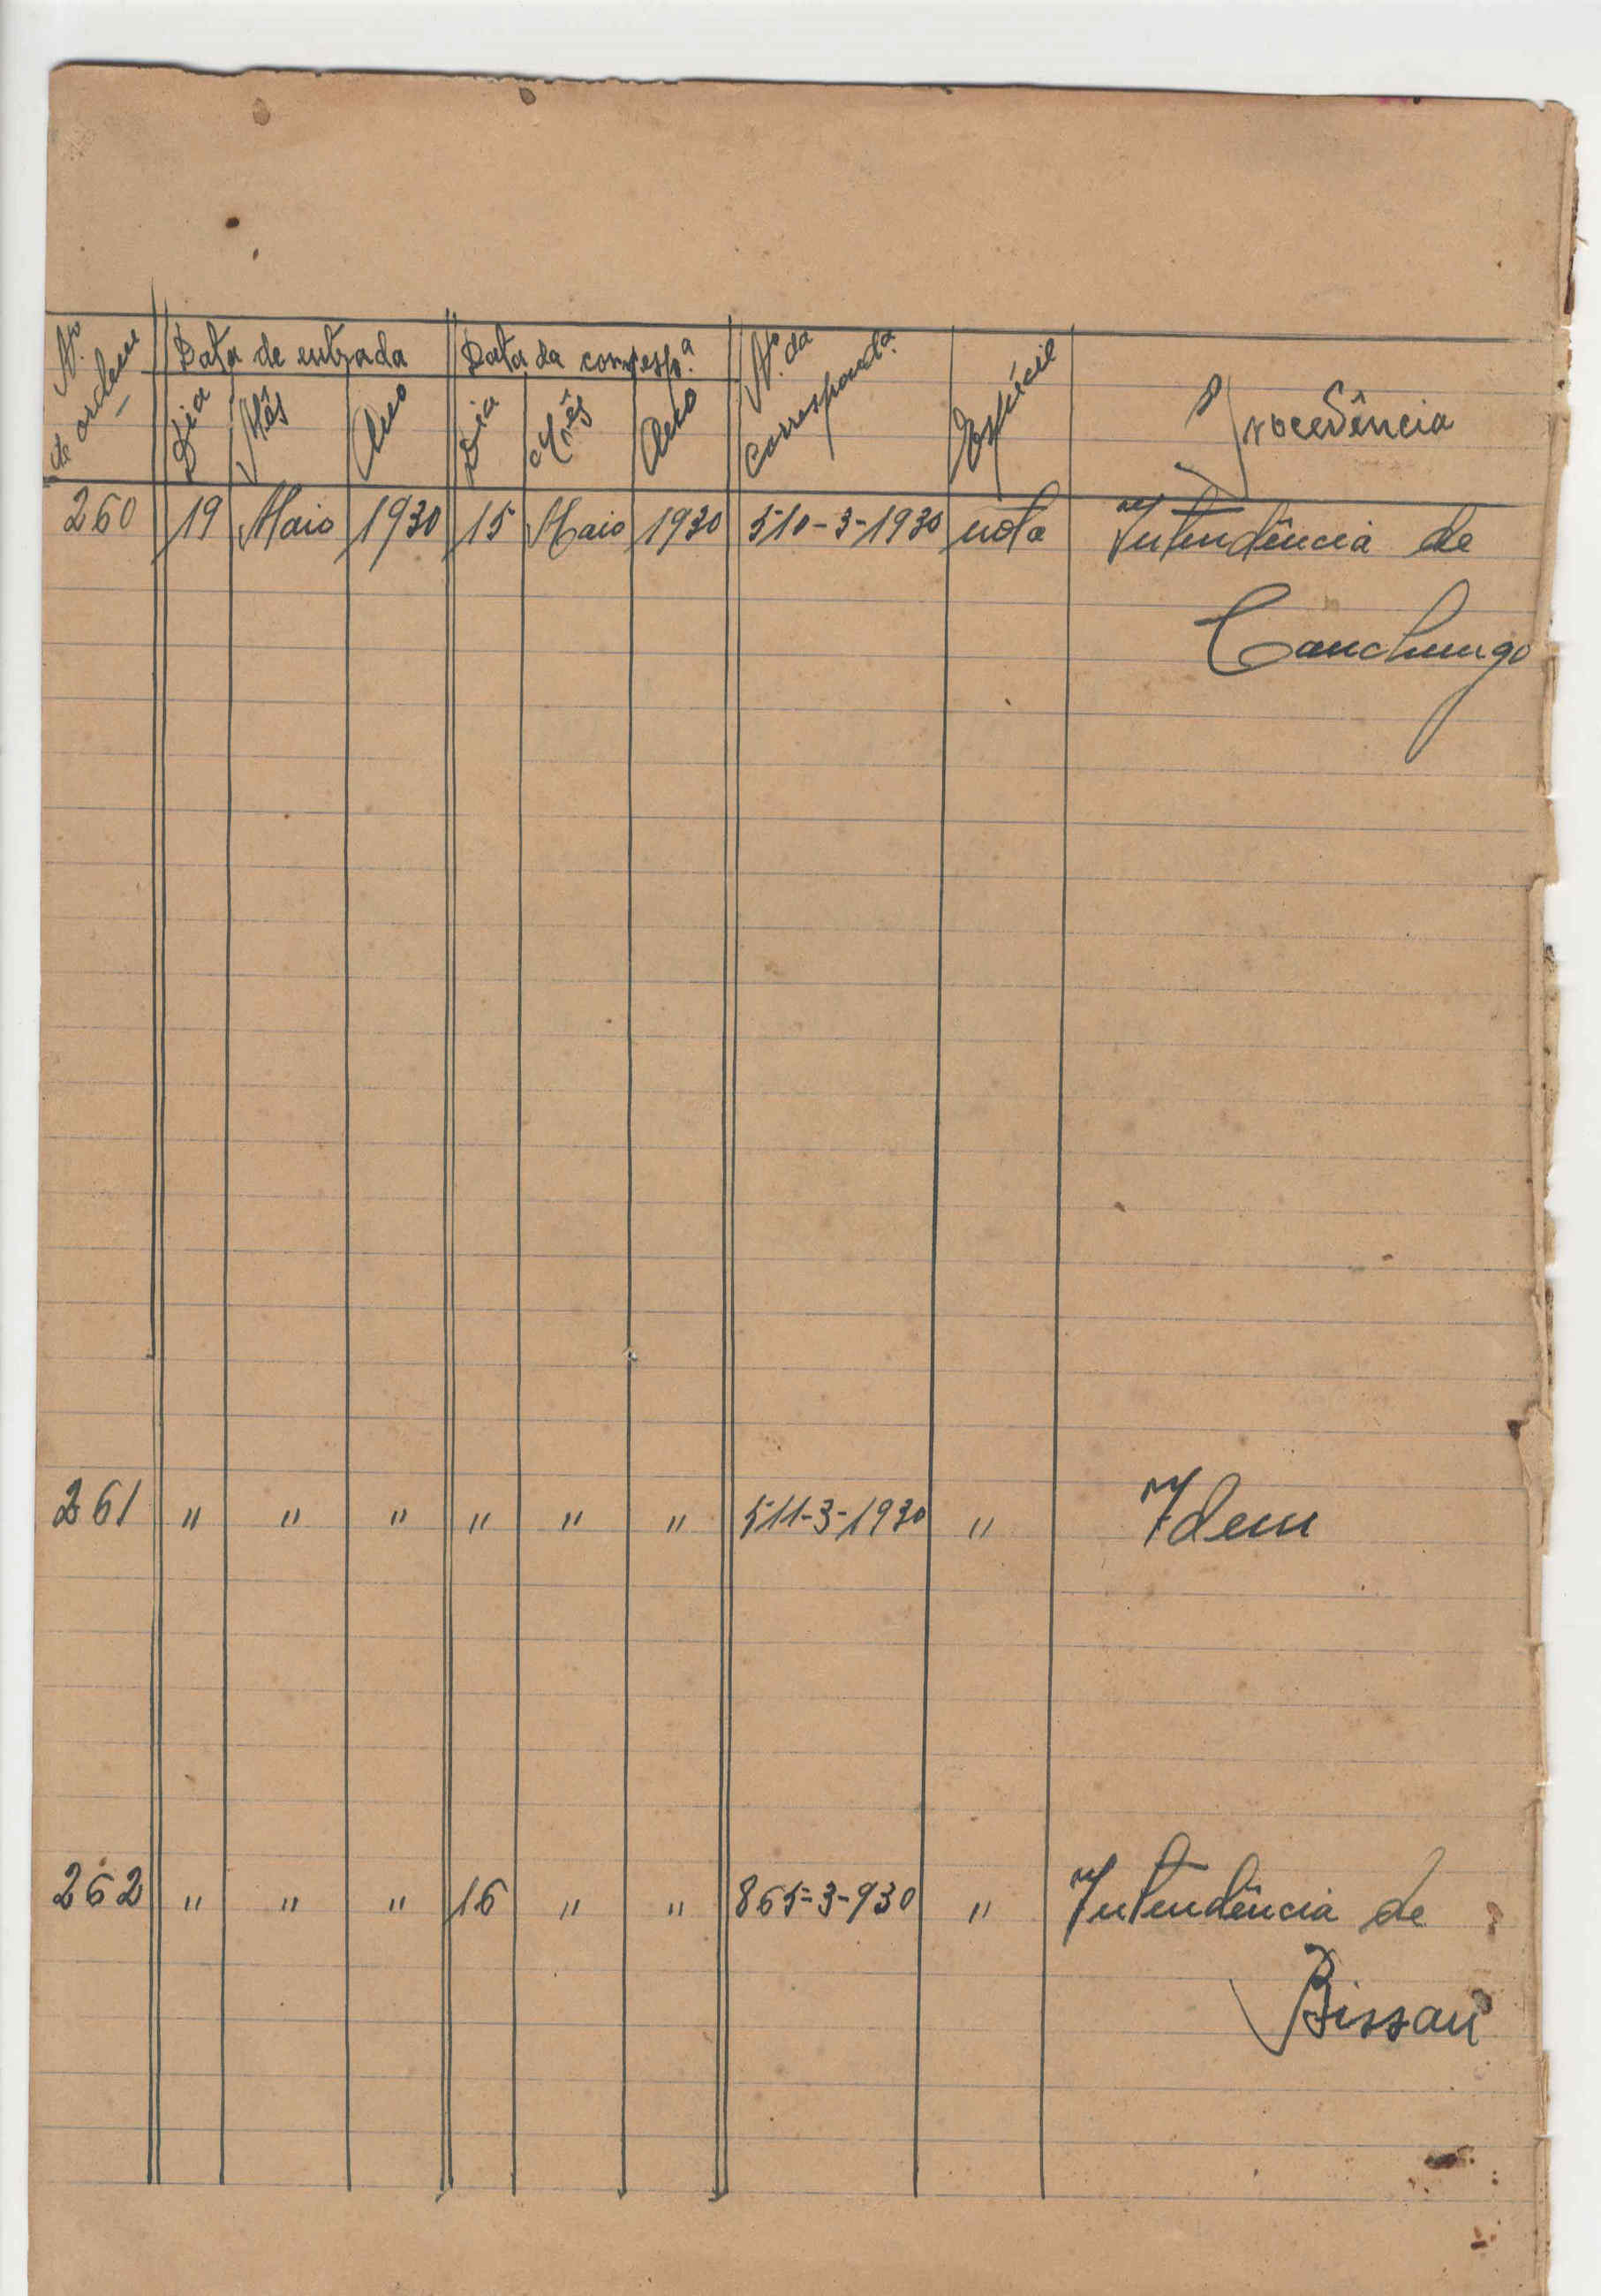 Nº de ordem Data de entrada Data da correspª Nº da correspondª Espécie Procedência
Dia Mês Ano Dia Mês Ano
260 19 Maio 1930 15 Maio 1930 510-3-1930 nota Intendência de
Canchungo
261 " " " " " " 511-3-1930 " Idem
262 " " " 16 " " 865-3-930 " Intendência de
Bissau